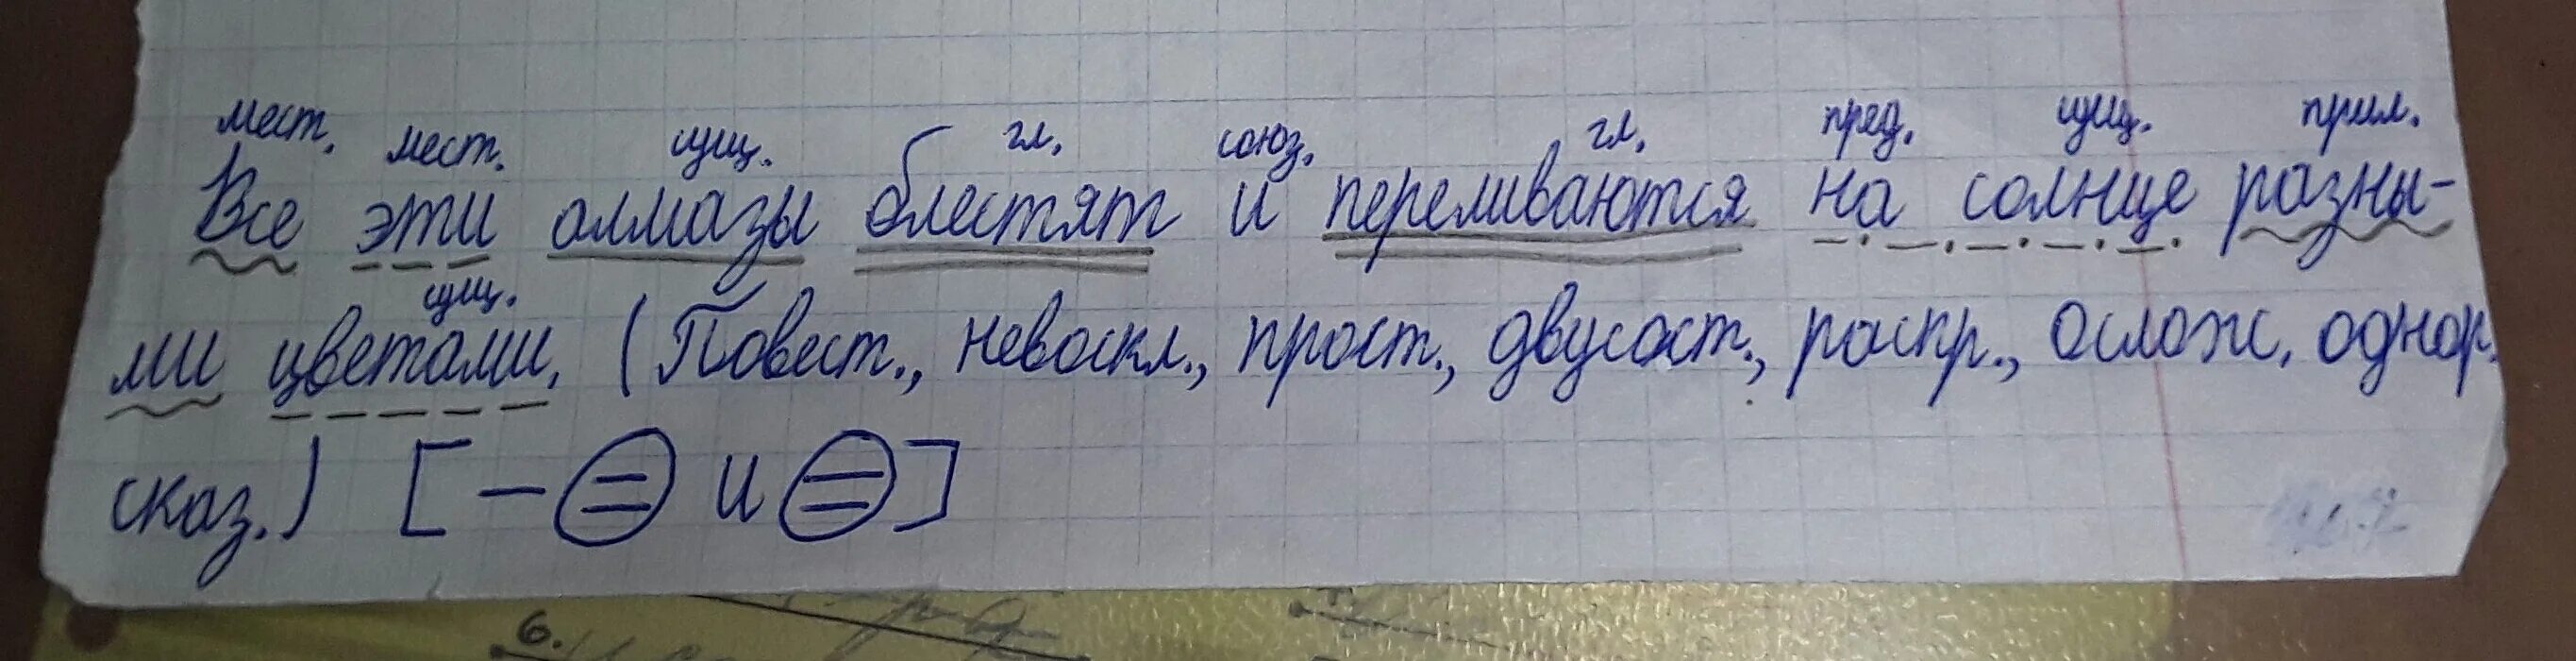 мест. мест. сущ. гл. союз. гл. пред. сущ. прил.
Все эти алмазы блестят и переливаются на солнце разны-
сущ.
ми цветами. (Повест., невоскл., прост., двусост., распр., ослож. однор.
сказ.) [ – = и = ]
6.